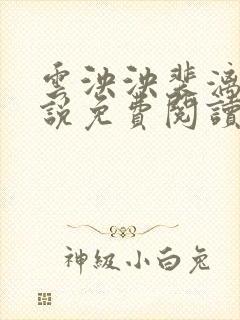 雲泱泱裴漓
說免費閱讀
神級小白兔